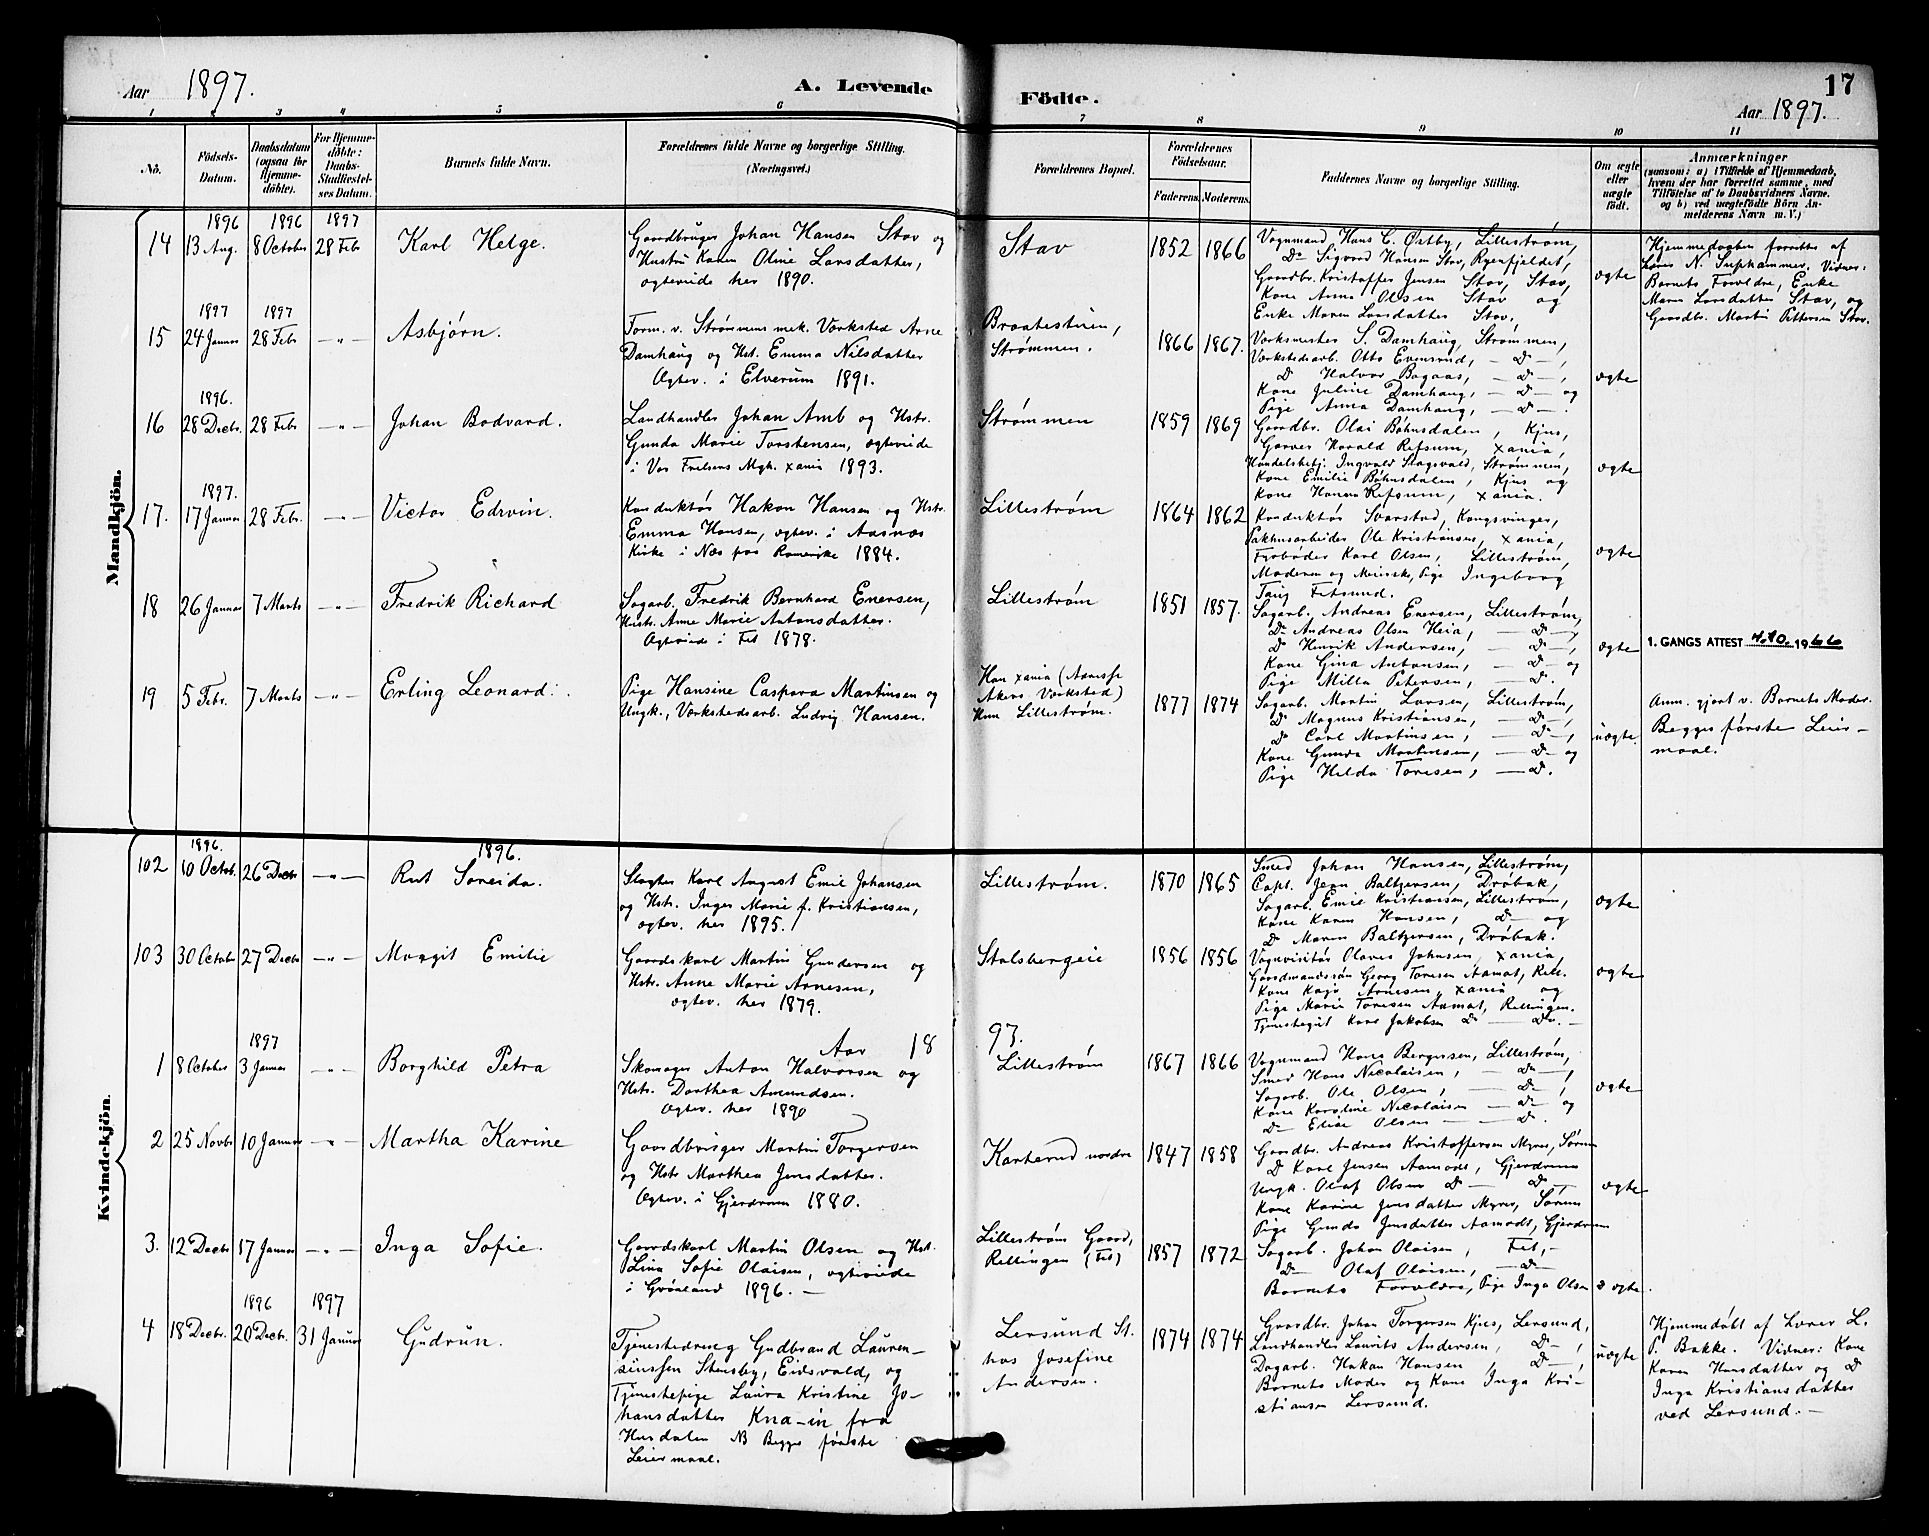 Aar 1897.
A. Levende
Födte.
17
Aar 1897.
1 2 3 4 5 6 7 8 9 10 11
No.
Födsels-Datum.
Daabsdatum (ogsaa for Hjemmedöbte).
For Hjemmedöbte: Daabs-Stadfæstelses Datum.
Barnets fulde Navn.
Forældrenes fulde Navne og borgerlige Stilling.
(Næringsvei.)
Forældrenes Bopæl.
Forældrenes Födselsaar.
Faderens. Moderens.
Faddernes Navne og borgerlige Stilling.
Om ægte eller uægte födt.
Anmærkninger
(saasom: a) i Tilfælde af Hjemmedaab,
hvem der har forrettet samme, med
Tilföielse af to Daabsvidners Navne.
og b) ved uægtefödte Börn Anmelderens Navn m. V.)
Mandkjön.
1896 1896 1897
14 13 Aug. 8 October 28 Febr Karl Helge.
Gaardbruger Johan Hansen Stav og
Hustru Karen Oline Larsdatter,
ægteviede her 1890.
Stav 1852 1866
Vognmand Hans C. Østby, Lillestrøm,
Do Sigvard Hansen Stav, Ryenfjeldet,
Gaardbr. Kristoffer Jensen Stav, Stav,
Kone Anna Olsen Stav og
Enke Maren Larsdatter Stav.
ægte
Hjemmedaaben forrettet af
Lærer N. Suphammer. Vidner:
Barnets Forældre, Enke
Maren Larsdatter Stav, og
Gaardbr. Martin Pettersen Stav.
1897 1897
15 24 Januar 28 Febr — " — Asbjørn.
Form. v. Strømmens mek. Værksted Arne
Damhaug og Hst. Emma Nilsdatter
Ægtev. i Elverum 1891.
Braatestuen,
Strømmen. 1866 1867.
Værksmester S. Damhaug, Strømmen,
Værkstedsarb. Otto Evensrud, — D —,
D Halvor Bagaas, — D —,
Kone Juline Damhaug, — D — og
Pige Anna Damhaug, — D —.
ægte
1896.
16 28 Decbr. 28 Febr — " — Johan Bodvard.
Landhandler Johan Amb og Hstr.
Gunda Marie Torstensen, ægteviede
i Vor Frelsers Mgh. Xania 1893.
Strømmen 1859 1869
Gaardbr. Olai Bøhnsdalen, Kjus,
Garver Harald Refsum, Xania,
Handelsbetj. Ingvald Slagsvold, Strømmen,
Kone Emilie Bøhnsdalen, Kjus og
Kone Hanna Refsum, Xania.
ægte
1897.
17. 17 Januar 28 Febr. — " — Victor Edrvin.
Konduktør Hakon Hansen og Hstr.
Emma Hansen, ægtev. i Aasnæs
Kirke i Næs paa Romerike 1884.
Lillestrøm 1864 1862
Konduktør Svarstad, Kongsvinger,
Pakhusarbeider Ole Kristiansen, Xania,
Fyrbøder Karl Olsen, Lillestrøm,
Moderen og Pige Ingeborg
Fetsund.
ægte
18 26 Januar 7 Marts — " — Fredrik Richard
Sagarb. Fredrik Bernhard Enersen,
Hustr. Anne Marie Antonsdatter.
Ægteviede i Fet 1878.
Lillestrøm 1851 1857.
Sagarb. Andreas Enersen, Lillestrøm,
D Andreas Olsen Heia, — D —,
D Henrik Andersen, — D —,
Kone Gina Antonsen, — D — og
Pige Milla Petersen, — D.
ægte
1. GANGS ATTEST 4.10. 1966
19 5 Febr. 7 Marts — " — Erling Leonard.
Pige Hansine Caspara Martinsen og
Ungk., Værkstedsarb. Ludvig Hansen.
Han Xania
Akers Værksted)
Hun Lillestrøm. 1877 1874
Sagarb. Martin Larsen, Lillestrøm,
D Magnus Kristiansen, — D —,
D Carl Martinsen, — D —,
Kone Gunda Martinsen, — D — og
Pige Hilda Toresen, — D.
uægte.
Anm. gjort v. Barnets Moder.
Begges første Leiermaal.
Kvindekjön.
1896. 1896.
102 10 Octob. 26 Decbr — " — Rut Soreida.
Slagter Karl August Emil Johansen
og Hstr. Inger Marie f. Kristiansen,
ægtev. her 1895.
Lillestrøm. 1870 1865
Smed Johan Hansen, Lillestrøm,
Capt. Jean Baltzersen, Drøbak,
Sagarb. Emil Kristiansen, Lillestrøm,
Kone Karen Hansen, D — og
D Maren Baltzersen, Drøbak.
ægte
103 30 October 27 Decbr — " — Margit Emilie
Gaardskarl Martin Gundersen og
Hstr. Anne Marie Arnesen,
ægtev. her 1879.
Stalsbergeie 1856 1856
Vognvisitør Olaves Johnsen, Xania,
Gaardmandssøn Georg Toresen Aamot, Rell.
Kone Kaja Arnesen, Xania og
Pige Marie Toresen Aamot, Rellingen.
Tjenestegut Karl Jakobsen D — D.
ægte
Aar 1893.
1897
1 8 October 3 Januar — " — Borghild Petra
Skomager Anton Halvorsen og
Hstr. Dorthea Amundsen.
Ægtev. her 1890
Lillestrøm 1867 1866
Vognmand Hans Bergersen, Lillestrøm,
Smed Hans Nicolaisen, — D —,
Sagarb. Ole Olsen, — D —,
Kone Karoline Nicolaisen — D — og
D — Elise Olsen — D.
ægte
2 25 Novbr 10 Januar — " — Martha Karine
Gaardbruger Martin Torgersen
og Hstr Marthea Jensdatter.
Ægtev. i Gjerdrum 1880.
Karterud nordre 1847 1858
Gaardbr. Andreas Kristoffersen Myrer, Sørum
D Karl Jensen Aamodt, Gjerdrum
Ungk. Olaf Olsen D — D —
Kone Karine Jensdatter Myrer, Sørum
Pige Gunda Jensdatter Aamodt, Gjerdrum
ægte
3. 12 Decbr 17 Januar — " — Inga Sofie.
Gaardskarl Martin Olsen og Hst.
Lina Sofie Olaisen, ægteviede
i Grønland 1896. —
Lillestrøm Gaard,
Rellingen (Fet) 1857 1872
Sagarb. Johan Olaisen, Fet, —
D — Olaf Olaisen, — D —
Barnets Forældre, Pige Inga Olsen
ægte.
1896 1897
4 18 Decbr. 20 Decbr. 31 Januar Gudrun.
Tjenestedreng Gudbrand Laurensenssen Stensby, Eidsvold, og
Tjenestepige Laura Kristine Johansdatter Kna-in fra
Hurdalen NB Begges første
Leiermaal.
Lersund St.
hos Josefine
Andersen. 1874 1874
Gaardbr. Johan Torgersen Kjus, Lersund,
Landhandler Laurits Andersen, D —,
Dagarb. Hakan Hansen, D —,
Barnets Moder og Kone Inga Kristiansen Lersund.
uægte
Hjemmedøbt af Lærer L.
P. Bakke. Vidner: Kone
Karen Hansdatter og D
Inga Kristiansdatter
ved Lersund. —